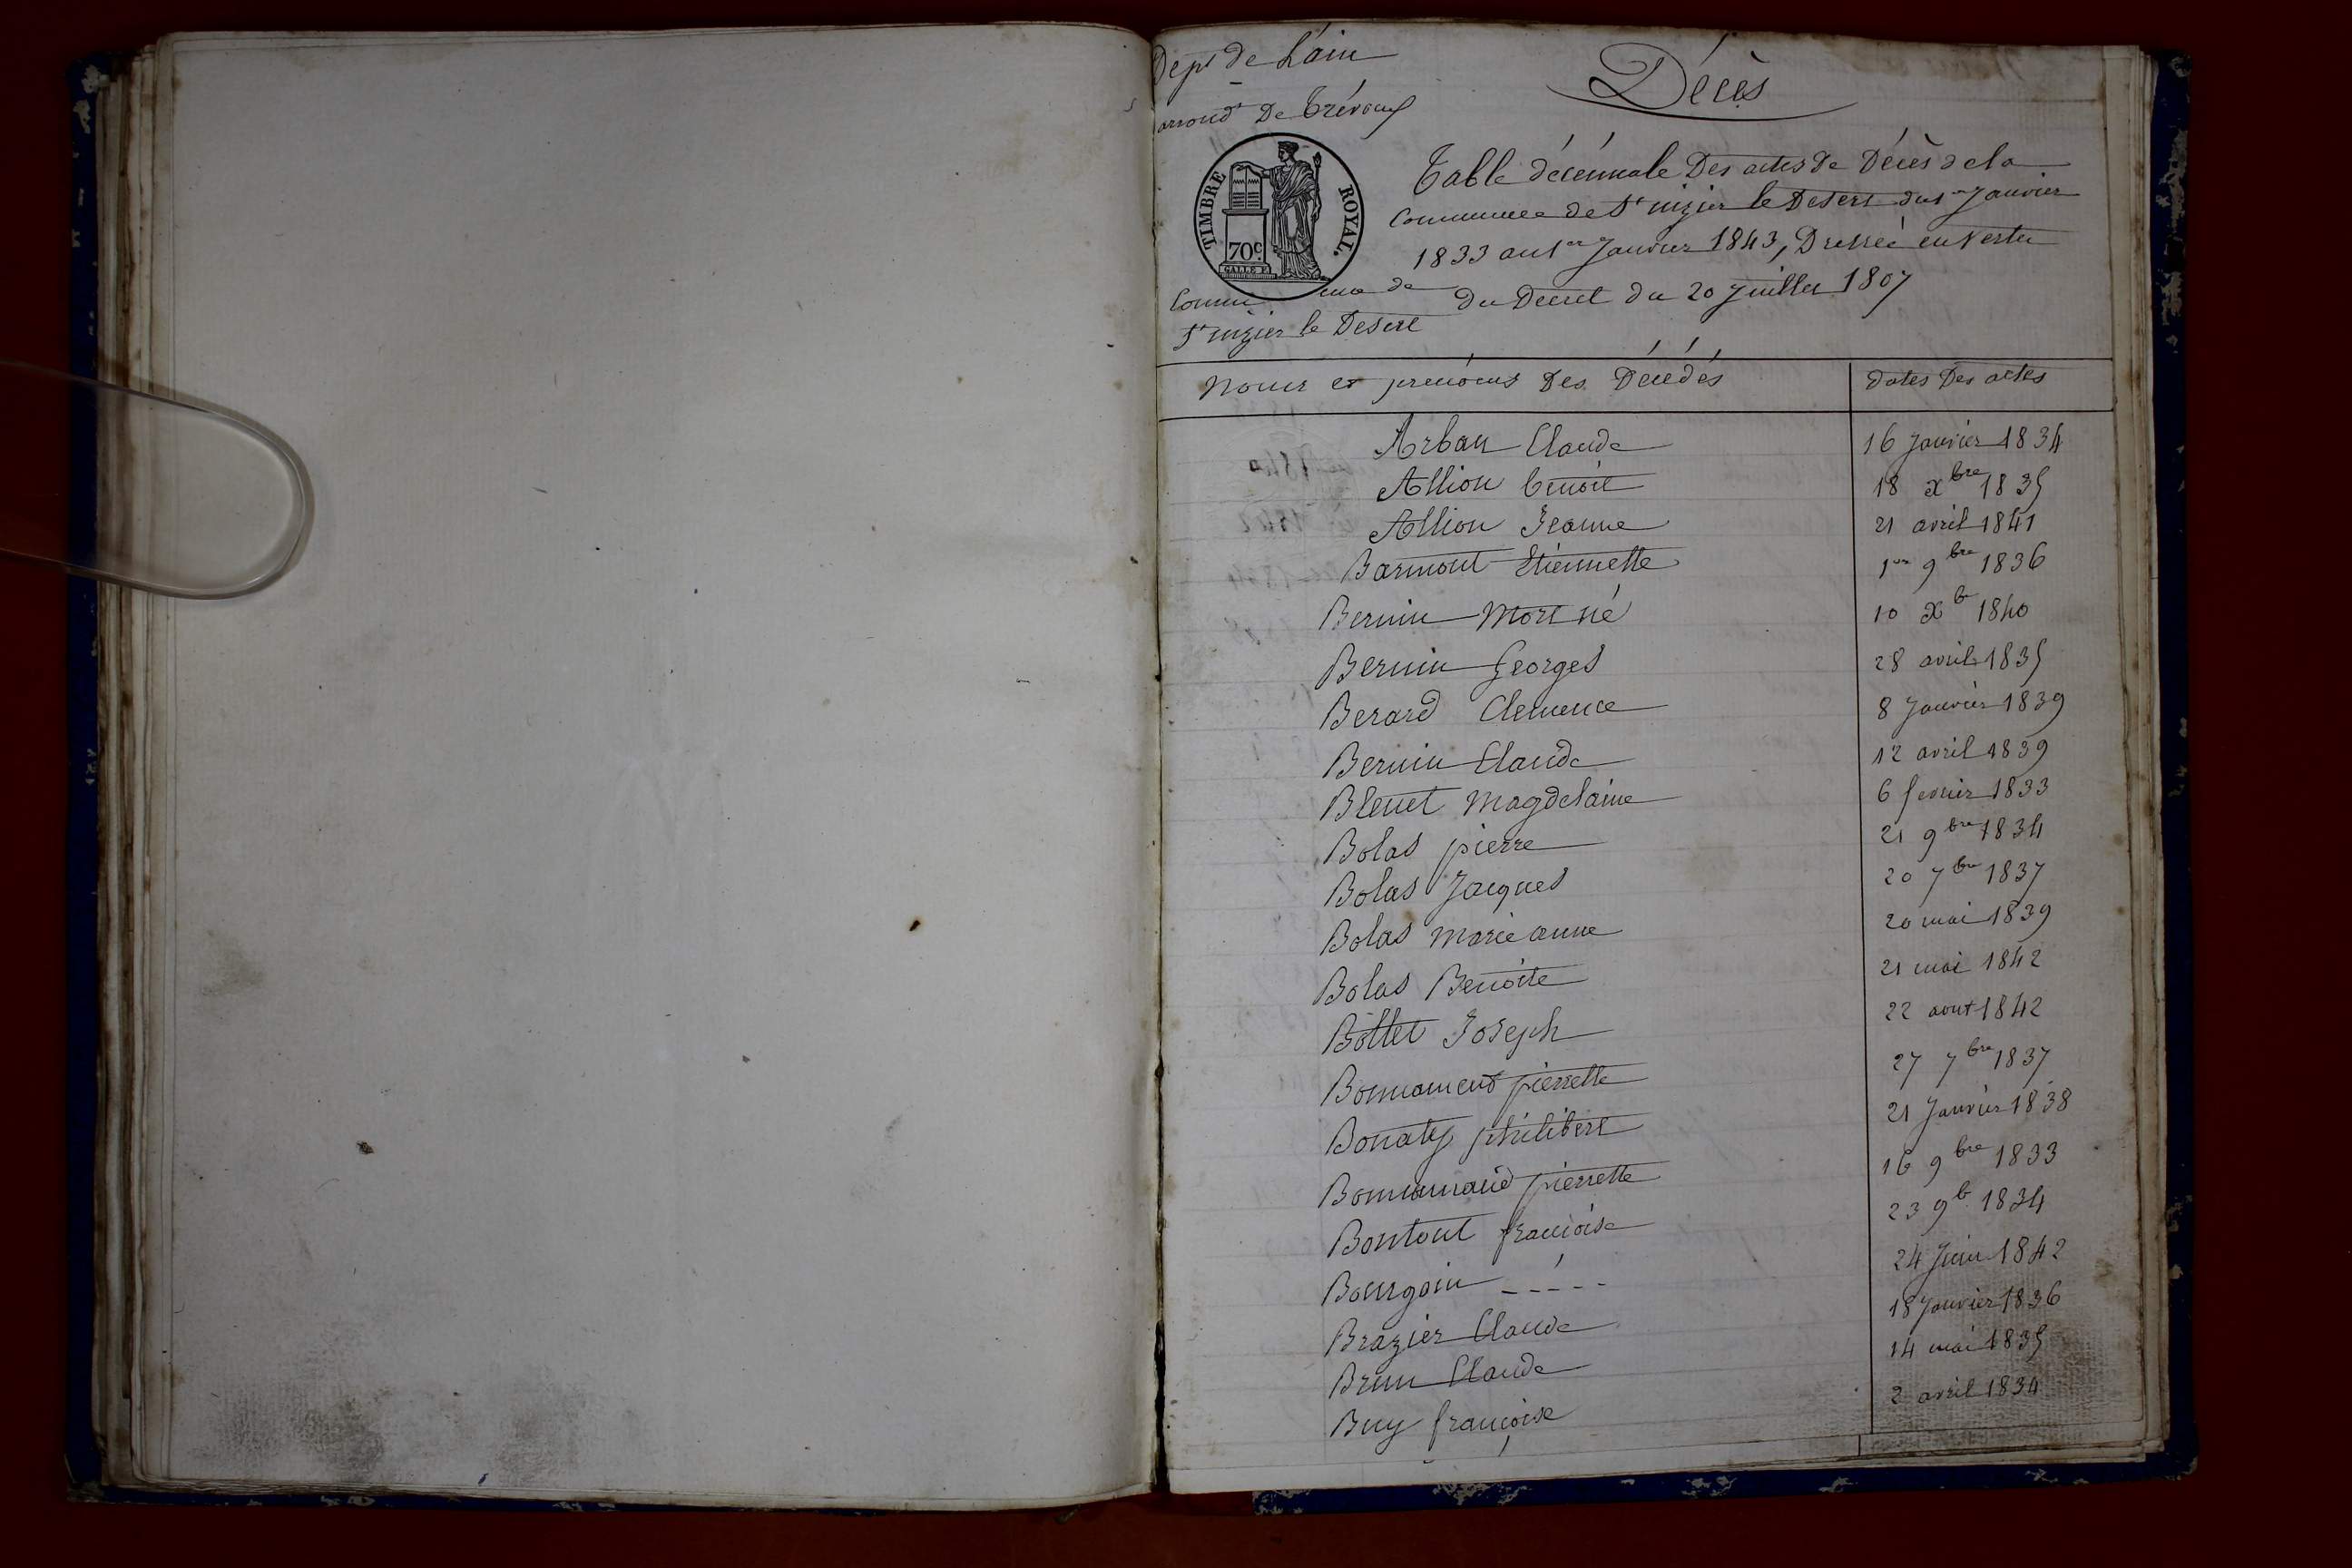 Dept de L'ain
Décès
arrond^t De Trévoux
TIMBRE ROYAL.
70c.
Table décennale Des actes De Décès de la
Commune de S^t nizier le Desert du 1^er Janvier
1833 au 1^er Janvier 1843, Dressée en Vertu
du Decret du 20 Juillet 1807
Commune de
S^t nizier le Desert
Noms et prénoms Des Décédés	dates Des actes
Arban Claude	16 Janvier 1834
Allion benoit	18 x^bre 1835
Allion Jeanne	21 avril 1841
Barmont Etiennette	1^er 9^bre 1836
Bernin Mort né	10 X^b 1840
Bernin Georges	28 avril 1835
Berard Clemence	8 Janvier 1839
Bernin Claude	12 avril 1839
Blenet Magdelaine	6 fevrier 1833
Bolas pierre	21 9^bre 1834
Bolas Jacques	20 7^bre 1837
Bolas Marie anne	20 mai 1839
Bolas Benoite	21 mai 1842
Bollet Joseph	22 aout 1842
Bonnamend pierrette	27 7^bre 1837
Bonaty philibert	21 Janvier 1838
pierrette	16 9^bre 1833
Bontout francoise	23 9^b 1834
Bourgoin - - - - -	24 Juin 1842
Brazier Claude	18 Janvier 1836
Brun Claude	14 mai 1835
Buy françoise	2 avril 1834